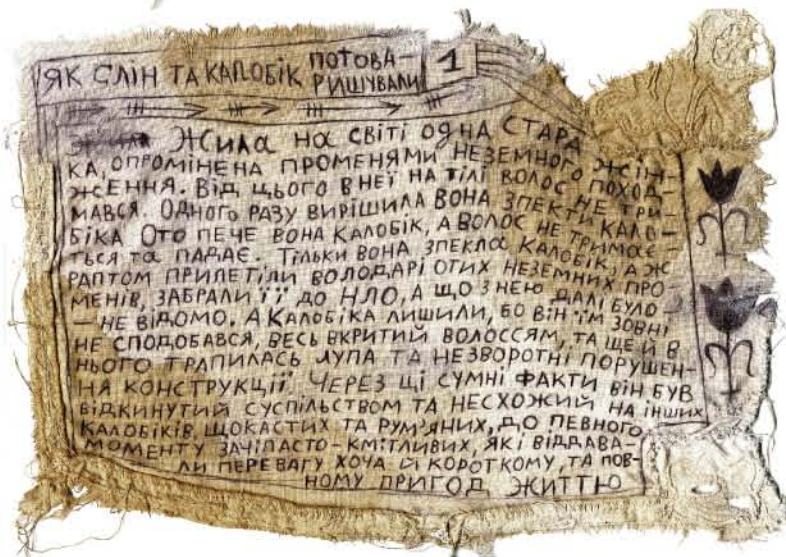 ЯК СЛІН ТА КАЛОБІК ПОТОВА-
РИШУВАЛИ
1
Жила на світі одна СТАРА ЖІН-
КА, ОПРОМІНЕНА ПРОМЕНЯМИ НЕЗЕМНОГО ПОХОД-
ЖЕННЯ. ВІД ЦЬОГО В НЕЇ НА ТІЛІ ВОЛОС НЕ ТРИ-
МАВСЯ. ОДНОГО РАЗУ ВИРІШИЛА ВОНА ЗПЕКТИ КАЛО-
БІКА ОТО ПЕЧЕ ВОНА КАЛОБІК, А ВОЛОС НЕ ТРИМАЄ-
ТЬСЯ ТА ПАДАЄ. ТІЛЬКИ ВОНА ЗПЕКЛА КАЛОБІК, АЖ
РАПТОМ ПРИЛЕТІЛИ ВОЛОДАРІ ОТИХ НЕЗЕМНИХ ПРО-
МЕНІВ, ЗАБРАЛИ ЇЇ ДО НЛО, А ЩО З НЕЮ ДАЛІ БУЛО-
— НЕ ВІДОМО. А КАЛОБІКА ЛИШИЛИ, БО ВІН ЇМ ЗОВНІ
НЕ СПОДОБАВСЯ, ВЕСЬ ВКРИТИЙ ВОЛОССЯМ, ТА ЩЕ Й В
НЬОГО ТРАПИЛАСЬ ЛУПА ТА НЕЗВОРОТНІ ПОРУШЕН-
НЯ КОНСТРУКЦІЇ. ЧЕРЕЗ ЦІ СУМНІ ФАКТИ ВІН БУВ
ВІДКИНУТИЙ СУСПІЛЬСТВОМ ТА НЕСХОЖИЙ НА ІНШИХ
КАЛОБІКІВ, ЩОКАСТИХ ТА РУМ'ЯНИХ, ДО ПЕВНОГО
МОМЕНТУ ЗАЧІПАСТО-КМІТЛИВИХ, ЯКІ ВІДДАВА-
ЛИ ПЕРЕВАГУ ХОЧА Й КОРОТКОМУ, ТА ПОВ-
НОМУ ПРИГОД ЖИТТЮ